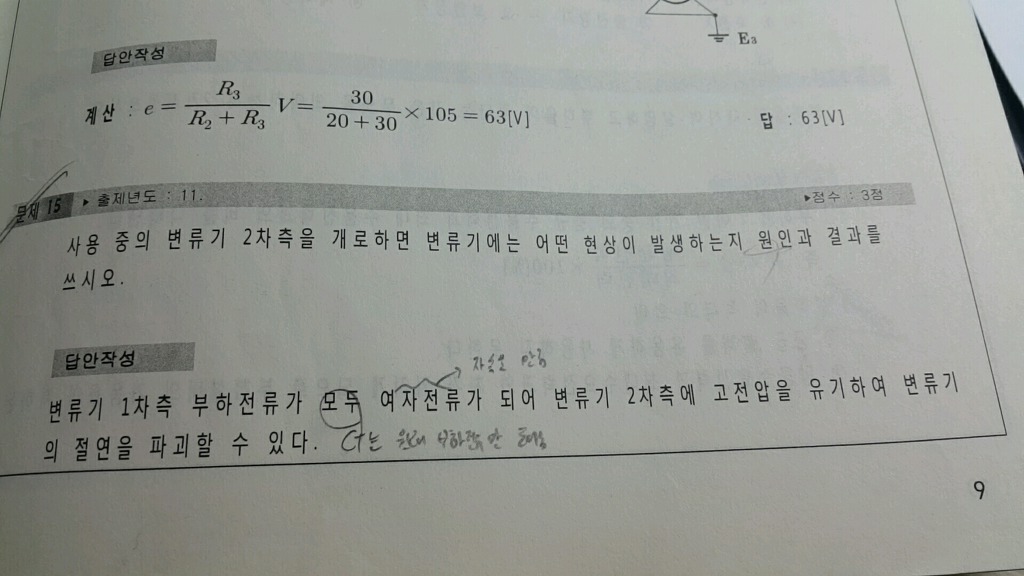 E₃
답안작성
계산 : e = R₃ / (R₂ + R₃) V = 30 / (20 + 30) × 105 = 63[V] 답 : 63[V]
문제 15 ▶ 출제년도 : 11. ▶점수 : 3점
사용 중의 변류기 2차측을 개로하면 변류기에는 어떤 현상이 발생하는지 원인과 결과를
쓰시오.
답안작성
자속을 만듬
변류기 1차측 부하전류가 모두 여자전류가 되어 변류기 2차측에 고전압을 유기하여 변류기
의 절연을 파괴할 수 있다. CT는 원래 부하전류만
9